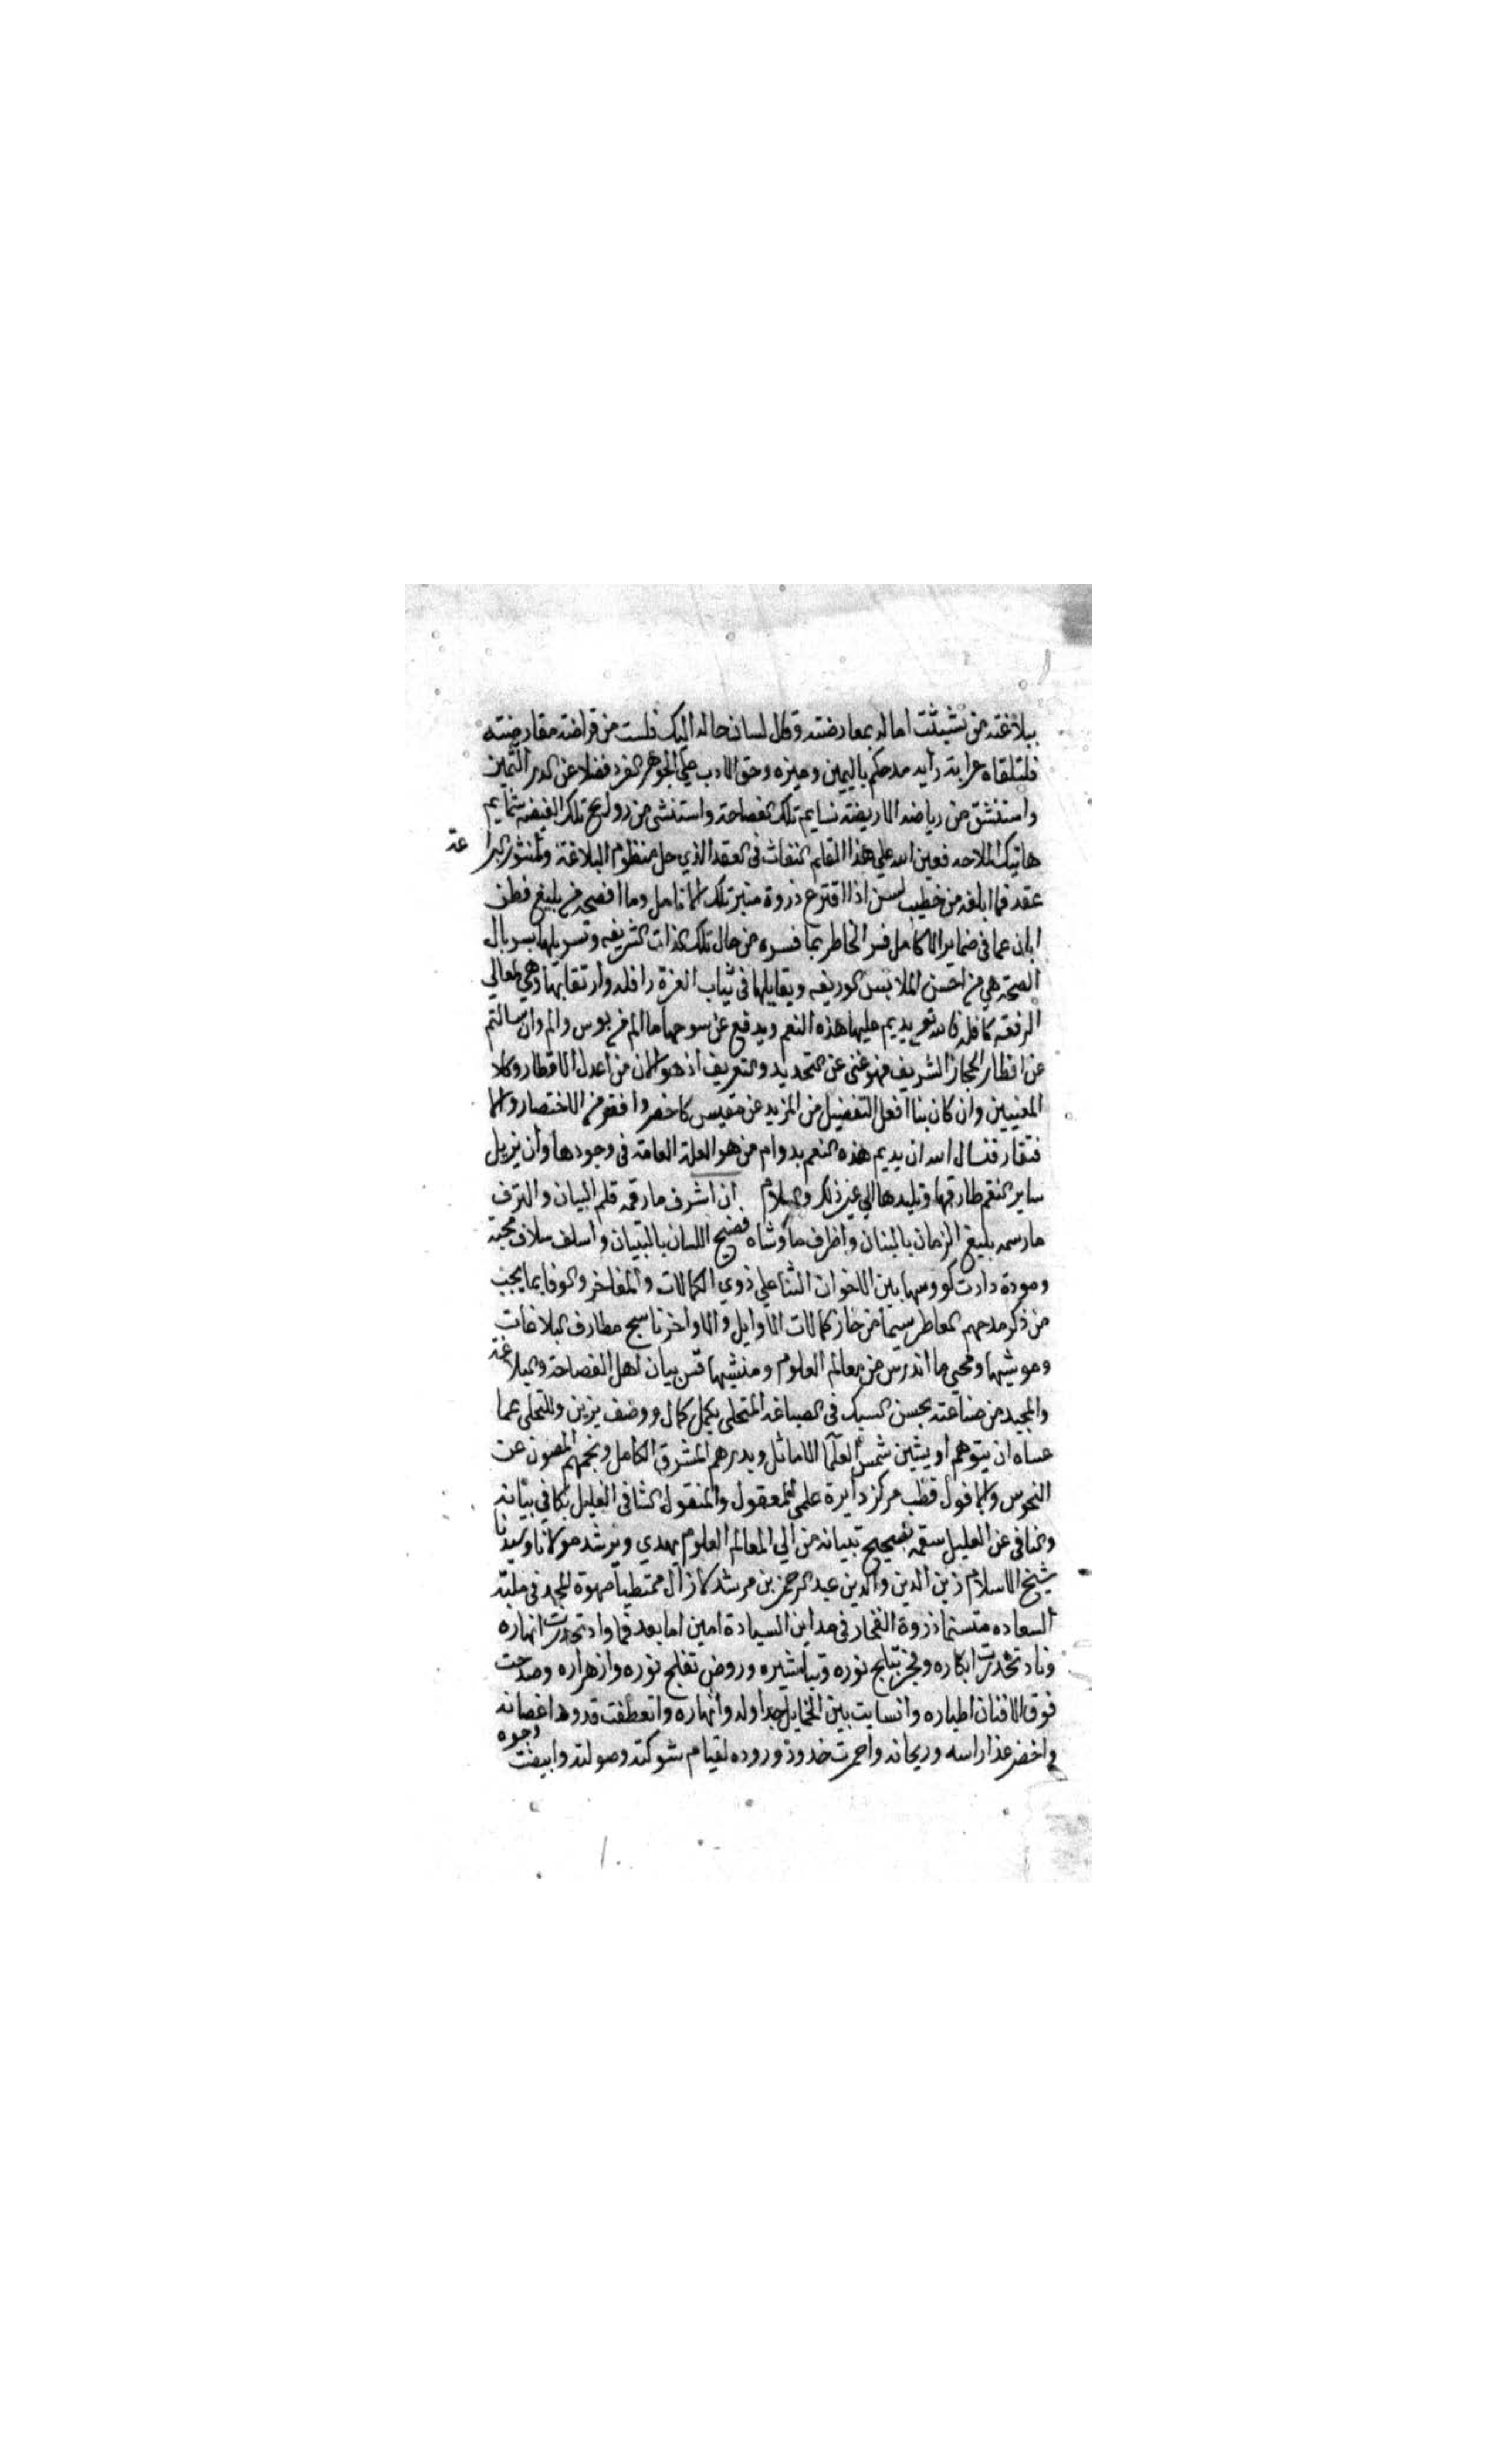 ببلاغته من تشبثت اماله بمعارضته وقال لسان حاله اليك فلست من قراضته مقارضته
فلتلقاه عرابة راية مدحكم باليمين وميزه وحق الادب علي الجوهر الفرد فضلا عن الدر الثمين
واستنشق من رياضه الاريضة نسايم تلك الفصاحة واستنشى من روايح تلك الغيضة شمايم
هاتيك الملاحه فعين الله علي هذا القلم النفاث في العقد الذي حل منظوم البلاغة ولمنثور البراعة
عقد فما ابلغه من خطيب لسن اذا اقترع ذروة منبر تلك الانامل وما افصحه من بليغ فطن
ابان عما في ضماير الاكامل فسر الخاطر بما فسره من حال تلك الذات الشريفه وتسربلها بسربال
الصحة هي من احسن الملابس الوريفه ويقابلها في ثياب العزة رافله وارتقابها وهي لمعالي
الرفعة كافله فالله تعالى يديم عليها هذه النعم ويدفع عن سوحها ما الم من بوس والم وان سالتم
عن اقطار الحجاز الشريف فهو غني عن التحديد والتعريف اذ هو الان من اعدل الاقطار وكلا
المعنيين وان كان بنا افعل التفضيل من المزيد غير مقيس كاخصر وافقر من الاختصار والا
فتقار فنسال الله ان يديم هذه النعم بدوام من هو العلة العامة في وجودها وان يزيل
ساير النقم طارفها وتليدها الي غير ذلك والسلام ان اشرف ما رقمه قلم البيان والترف
ما رسمه بليغ الزمان بالبنان واظرف ما وشاه فصيح اللسان بالتبيان واسلف سلاف محبة
ومودة دارت كووسها بين الاخوان الثنا علي ذوي الكمالات والمفاخر والوفا بما يجب
من ذكر مدحهم العاطر سيما من حاز كمالات الاوايل والاواخر ناسج مطارف البلاغات
وموشيها ومحيي ما اندرس من معالم العلوم ومنشيها قس بيان اهل الفصاحة والبلاغة
والمجيد من صناعته بحسن السبك في الصياغه المتحلى بكل كمال ووصف يزين والمتخلى عما
عساه ان يتوهم او يشين شمس العلما الاماثل وبدرهم المشرق الكامل ونجمهم المصون عن
النحوس والافول قطب مركز دايرة علمي المعقول والمنقول الشافي الغليل بكافي بيانه
والنافي عن العليل سقمه بصحيح تبيانه من الي المعالم العلوم يهدي ويرشد مولانا وسيدنا
شيخ الاسلام زين الدين والدين عبد الرحمن بن مرشد لازال ممتطيا صهوة المجد في حلبة
السعاده متسنما ذروة الفخار في مداين السيادة امين اما بعد فما واد تحدرت انهاره
وناد تخدرت ابكاره وفجر تبلج نوره وتباشيره وروض تفلج نوره وازهراره وصدحت
فوق الافنان اطياره وانسابت بين الخمايل جداوله وانهاره وانعطفت قدود اغصانه
واخضر عذار اسه وريحانه واحمرت خدود وروده لقيام شوكته وصولته وابيضت وجوه